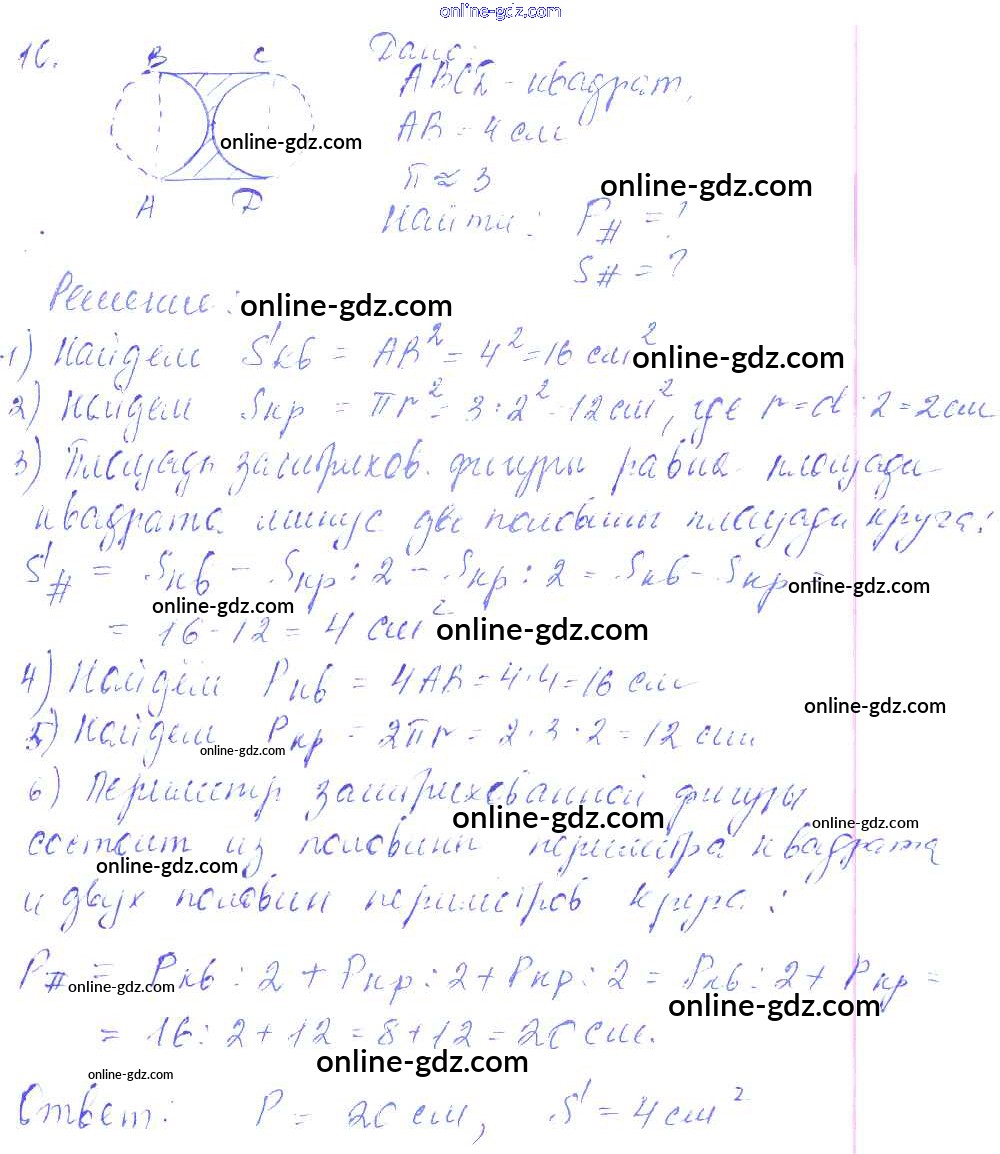 online-gdz.com
16.
B C
A D
online-gdz.com
Дано:
ABCD - квадрат,
AB = 4 см
π ≈ 3
online-gdz.com
Найти: P# = ?
S# = ?
Решение:
online-gdz.com
1) Найдем Sкв = AB² = 4² = 16 см²
online-gdz.com
2) Найдем Sкр = πr² = 3 · 2² = 12 см², где r = d : 2 = 2 см
3) Площадь заштрихов. фигуры равна площади
квадрата минус две половины площади круга:
S# = Sкв - Sкр : 2 - Sкр : 2 = Sкв - Sкр =
online-gdz.com
online-gdz.com
= 16 - 12 = 4 см²
online-gdz.com
4) Найдём Pкв = 4AB = 4 · 4 = 16 см
online-gdz.com
5) Найдем Pкр = 2πr = 2 · 3 · 2 = 12 см.
online-gdz.com
6) Периметр заштрихованной фигуры
online-gdz.com
online-gdz.com
состоит из половины периметра квадрата
online-gdz.com
и двух половин периметров круга:
P# = Pкв : 2 + Pкр : 2 + Pкр : 2 = Pкв : 2 + Pкр =
online-gdz.com
online-gdz.com
= 16 : 2 + 12 = 8 + 12 = 20 см.
online-gdz.com
online-gdz.com
Ответ: P = 20 см, S = 4 см²